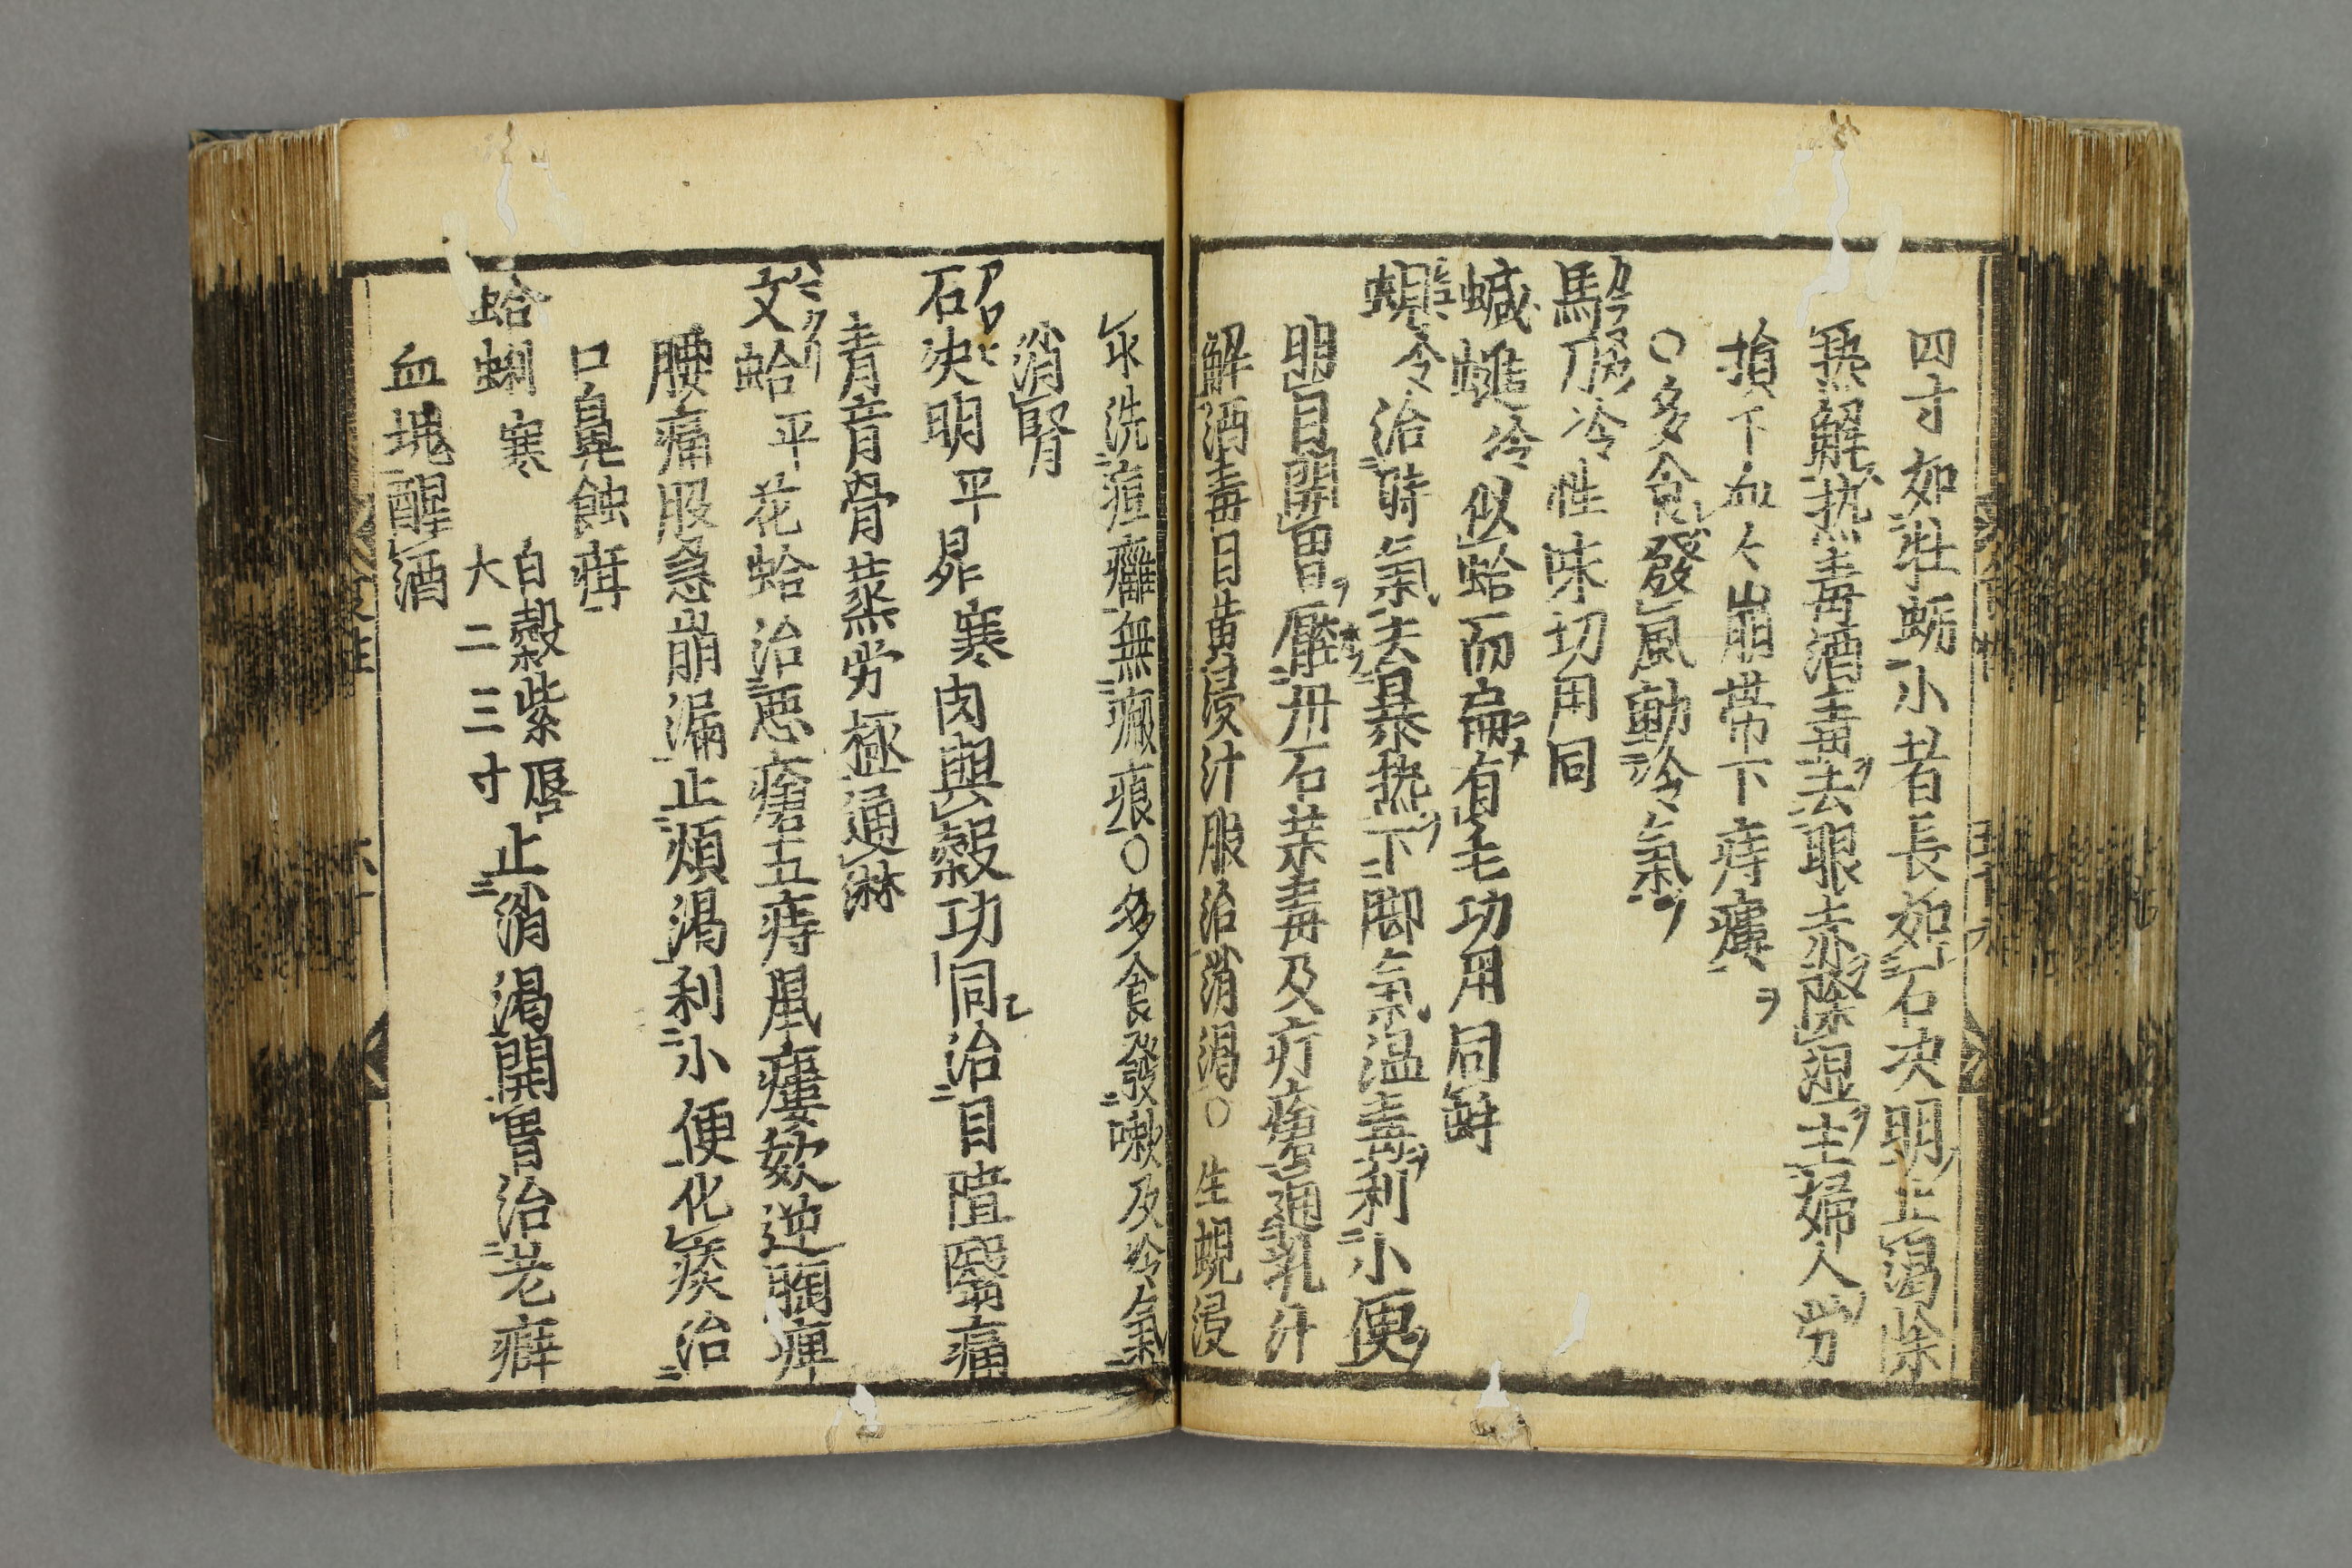 四寸如牡蛎小者長如石决明止渇除
熱解热毒酒毒去眼赤除湿主婦人労
損下血々崩帯下痔瘻ヲ
〇多食發風動冷氣ヲ
馬刀冷性味切用同
蝛䗯冷似蛤而扁有毛功用同蚌
蜆冷治時氣去暴热下脚氣温毒利小便
明目開胃壓丹石茉毒及疔瘡通乳汁
解酒毒目黄浸汁服治消渇〇生蜆浸
水洗痘癰無瘢痕〇多食發嗽及冷氣
消腎
石决明平 㫡寒肉與殻功同治目障翳痛
青盲骨蒸労極通淋
文蛤平花蛤治悪瘡五痔鼠瘻欬逆胸痺
腰痛股急崩漏止煩渇利小便化痰治
口鼻蝕疳
蛤蜊寒 白殻紫唇
大二三寸
止消渇開胃治老癖
血塊醒酒